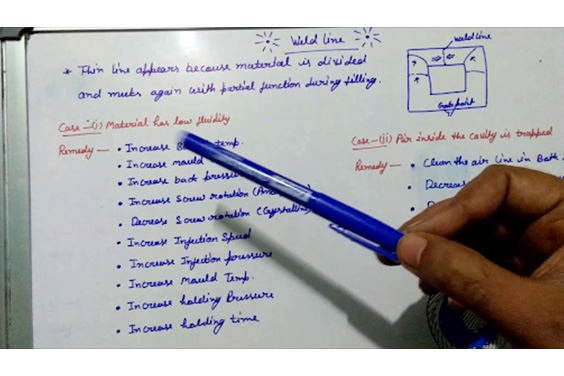 Weld line
* Thin line appears because material is divided
and meets again with partial function during filling.
weld line
Gate point
Case-(i) Material has low fluidity
Remedy —
• Increase temp.
• Increase mould
• Increase back pressure
• Increase Screw rotation
• Decrease Screw rotation (Crystalline
• Increase Injection Speed
• Increase Injection pressure
• Increase Mould Temp.
• Increase holding Pressure
• Increase holding time
Case-(ii) Air inside the cavity is trapped
Remedy —
• Clean the air line in Both
• Decrease